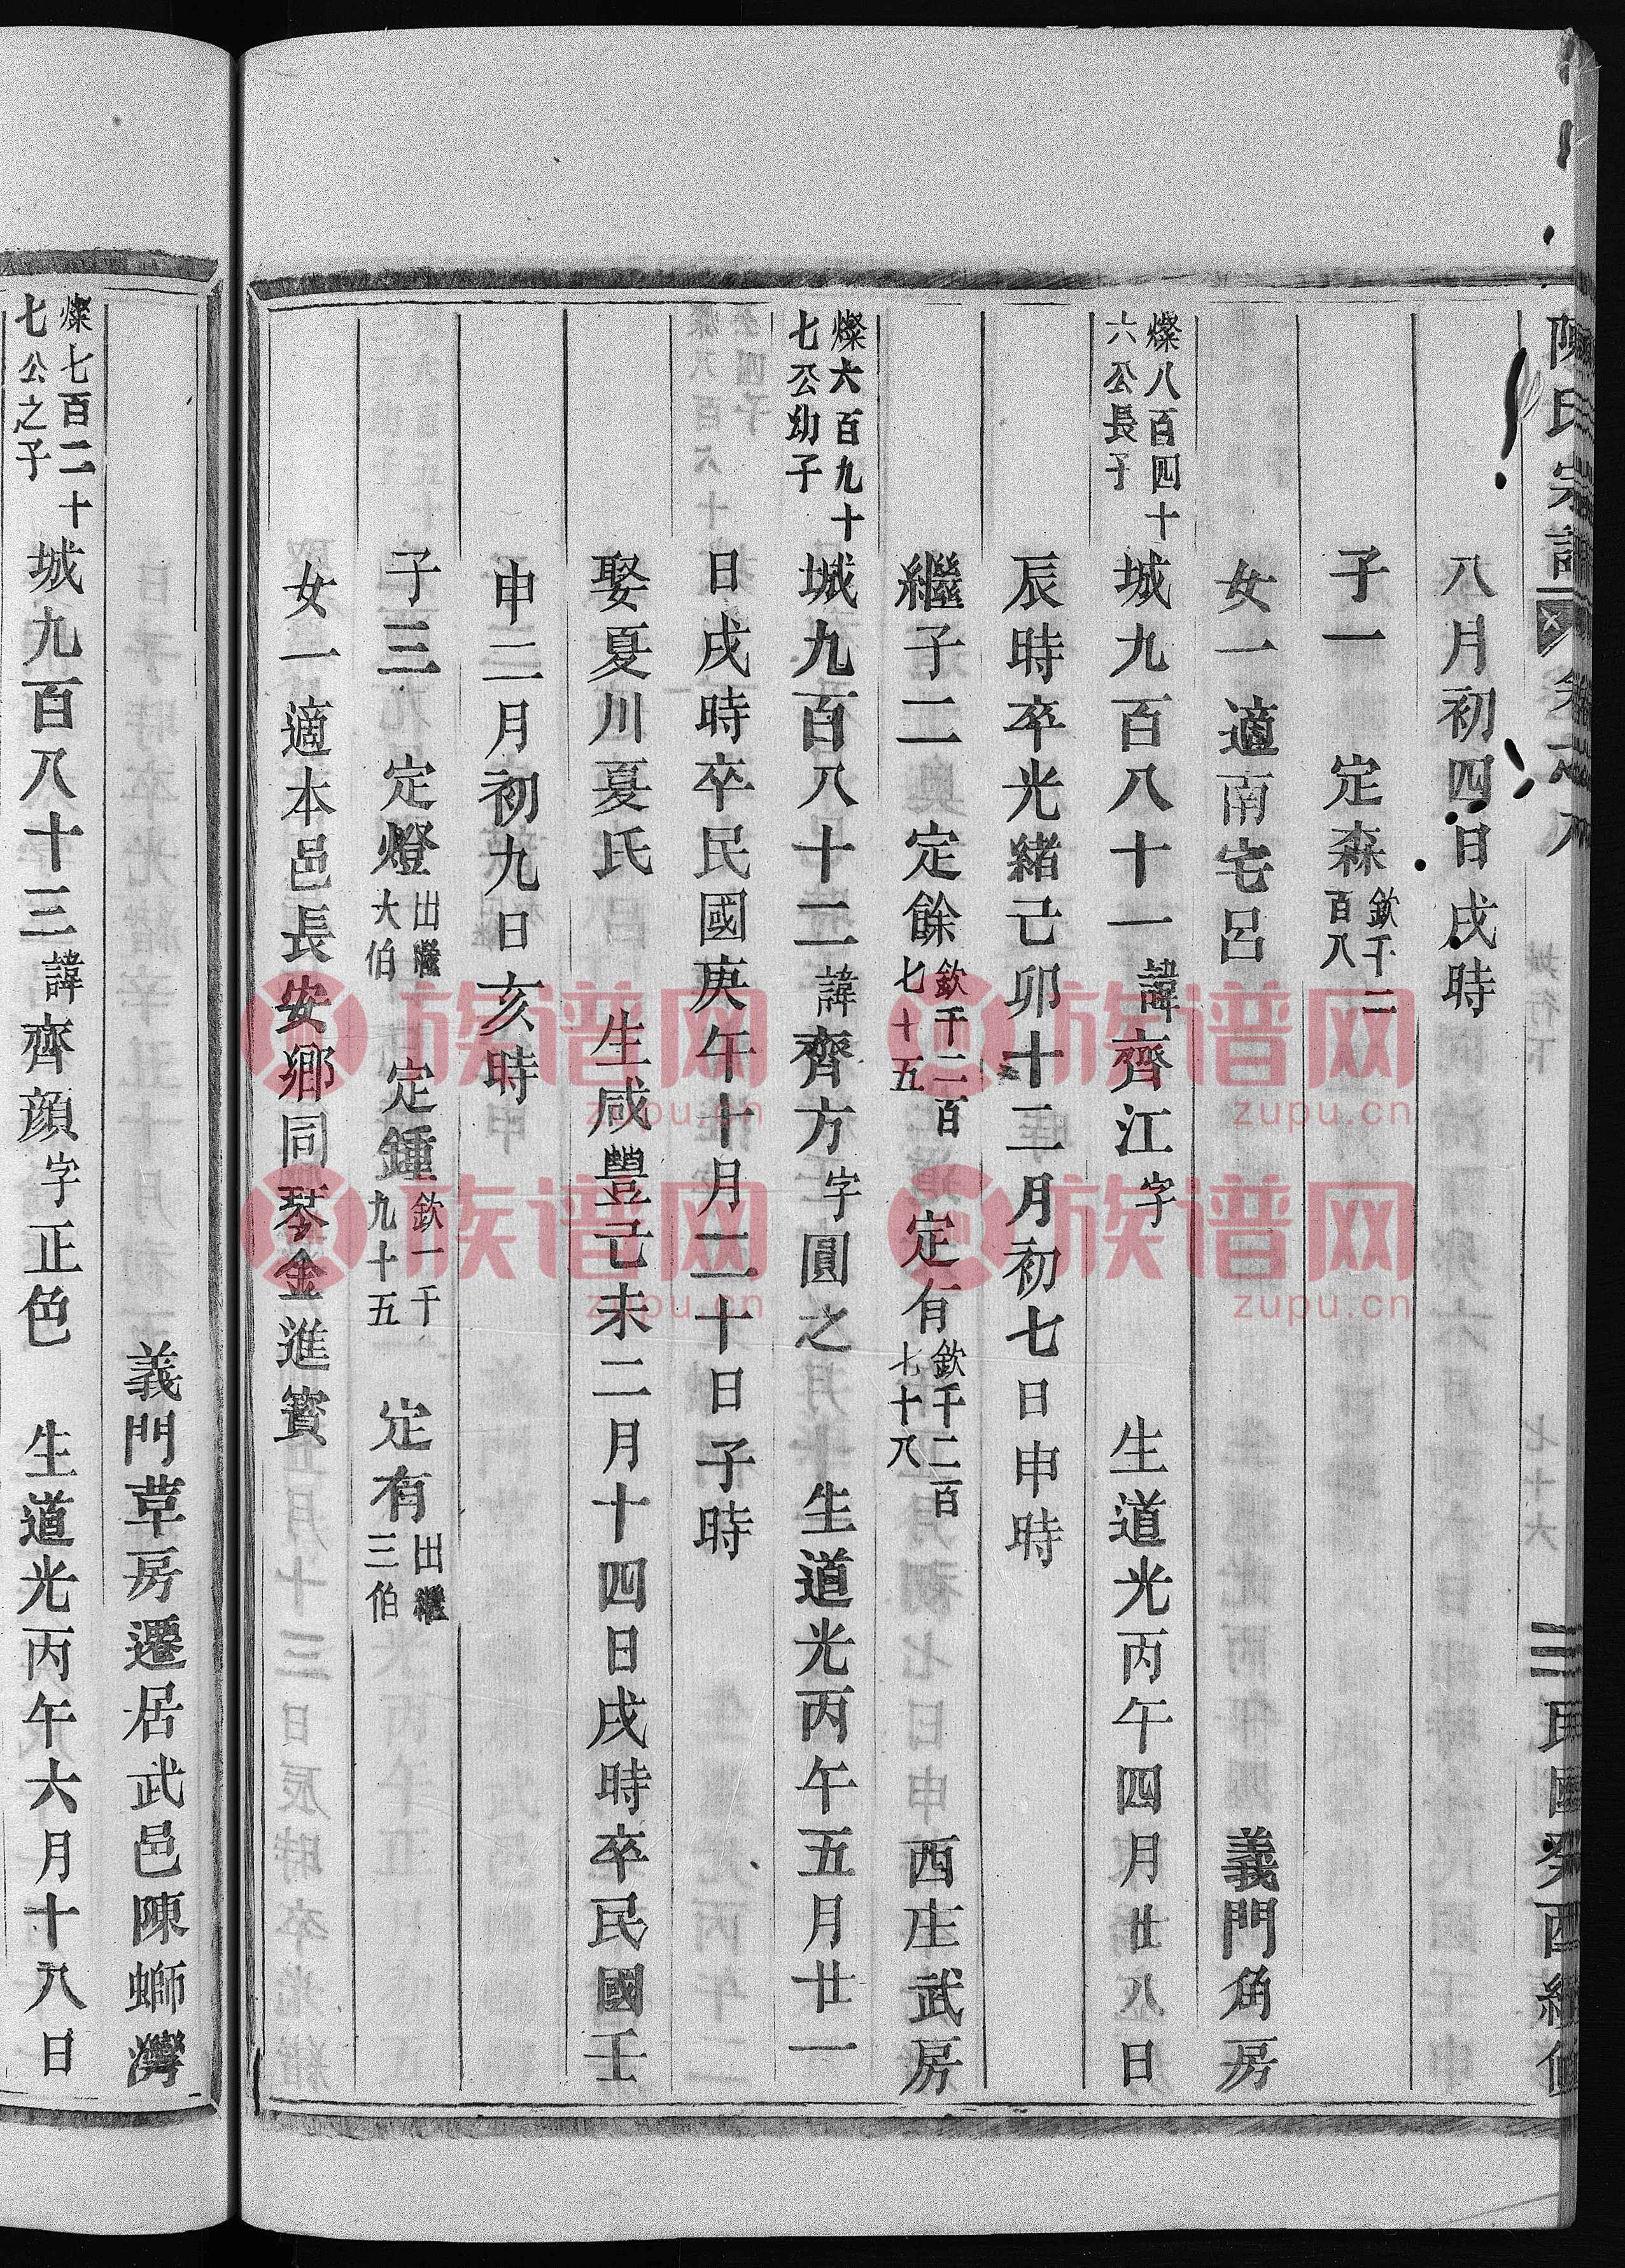 八月初四日戌時
子一　定森欽千二百八
女一適南宅呂　義門角房
燦八百四十六公長子　城九百八十一諱齊江字　生道光丙午四月廿八日
辰時卒光緒己卯十二月初七日申時
繼子二　定餘欽千二百七十五　定有欽千二百七十八　西庄武房
燦六百九十七公幼子　城九百八十二諱齊方字圓之　生道光丙午五月廿一
日戌時卒民國庚午十月二十日子時
娶夏川夏氏　生咸豐己未二月十四日戌時卒民國壬
申二月初九日亥時
子三　定燈出繼大伯　定鍾欽一千九十五　定有出繼三伯
女一適本邑長安鄉同琴金進賓
義門草房遷居武邑陳螄灣
燦七百二十七公之子　城九百八十三諱齊顔字正色　生道光丙午六月十八日
陳氏宗譜　卷之八　民國癸酉續修
族谱网
zupu.cn
族谱网
zupu.cn
族谱网
zupu.cn
族谱网
zupu.cn